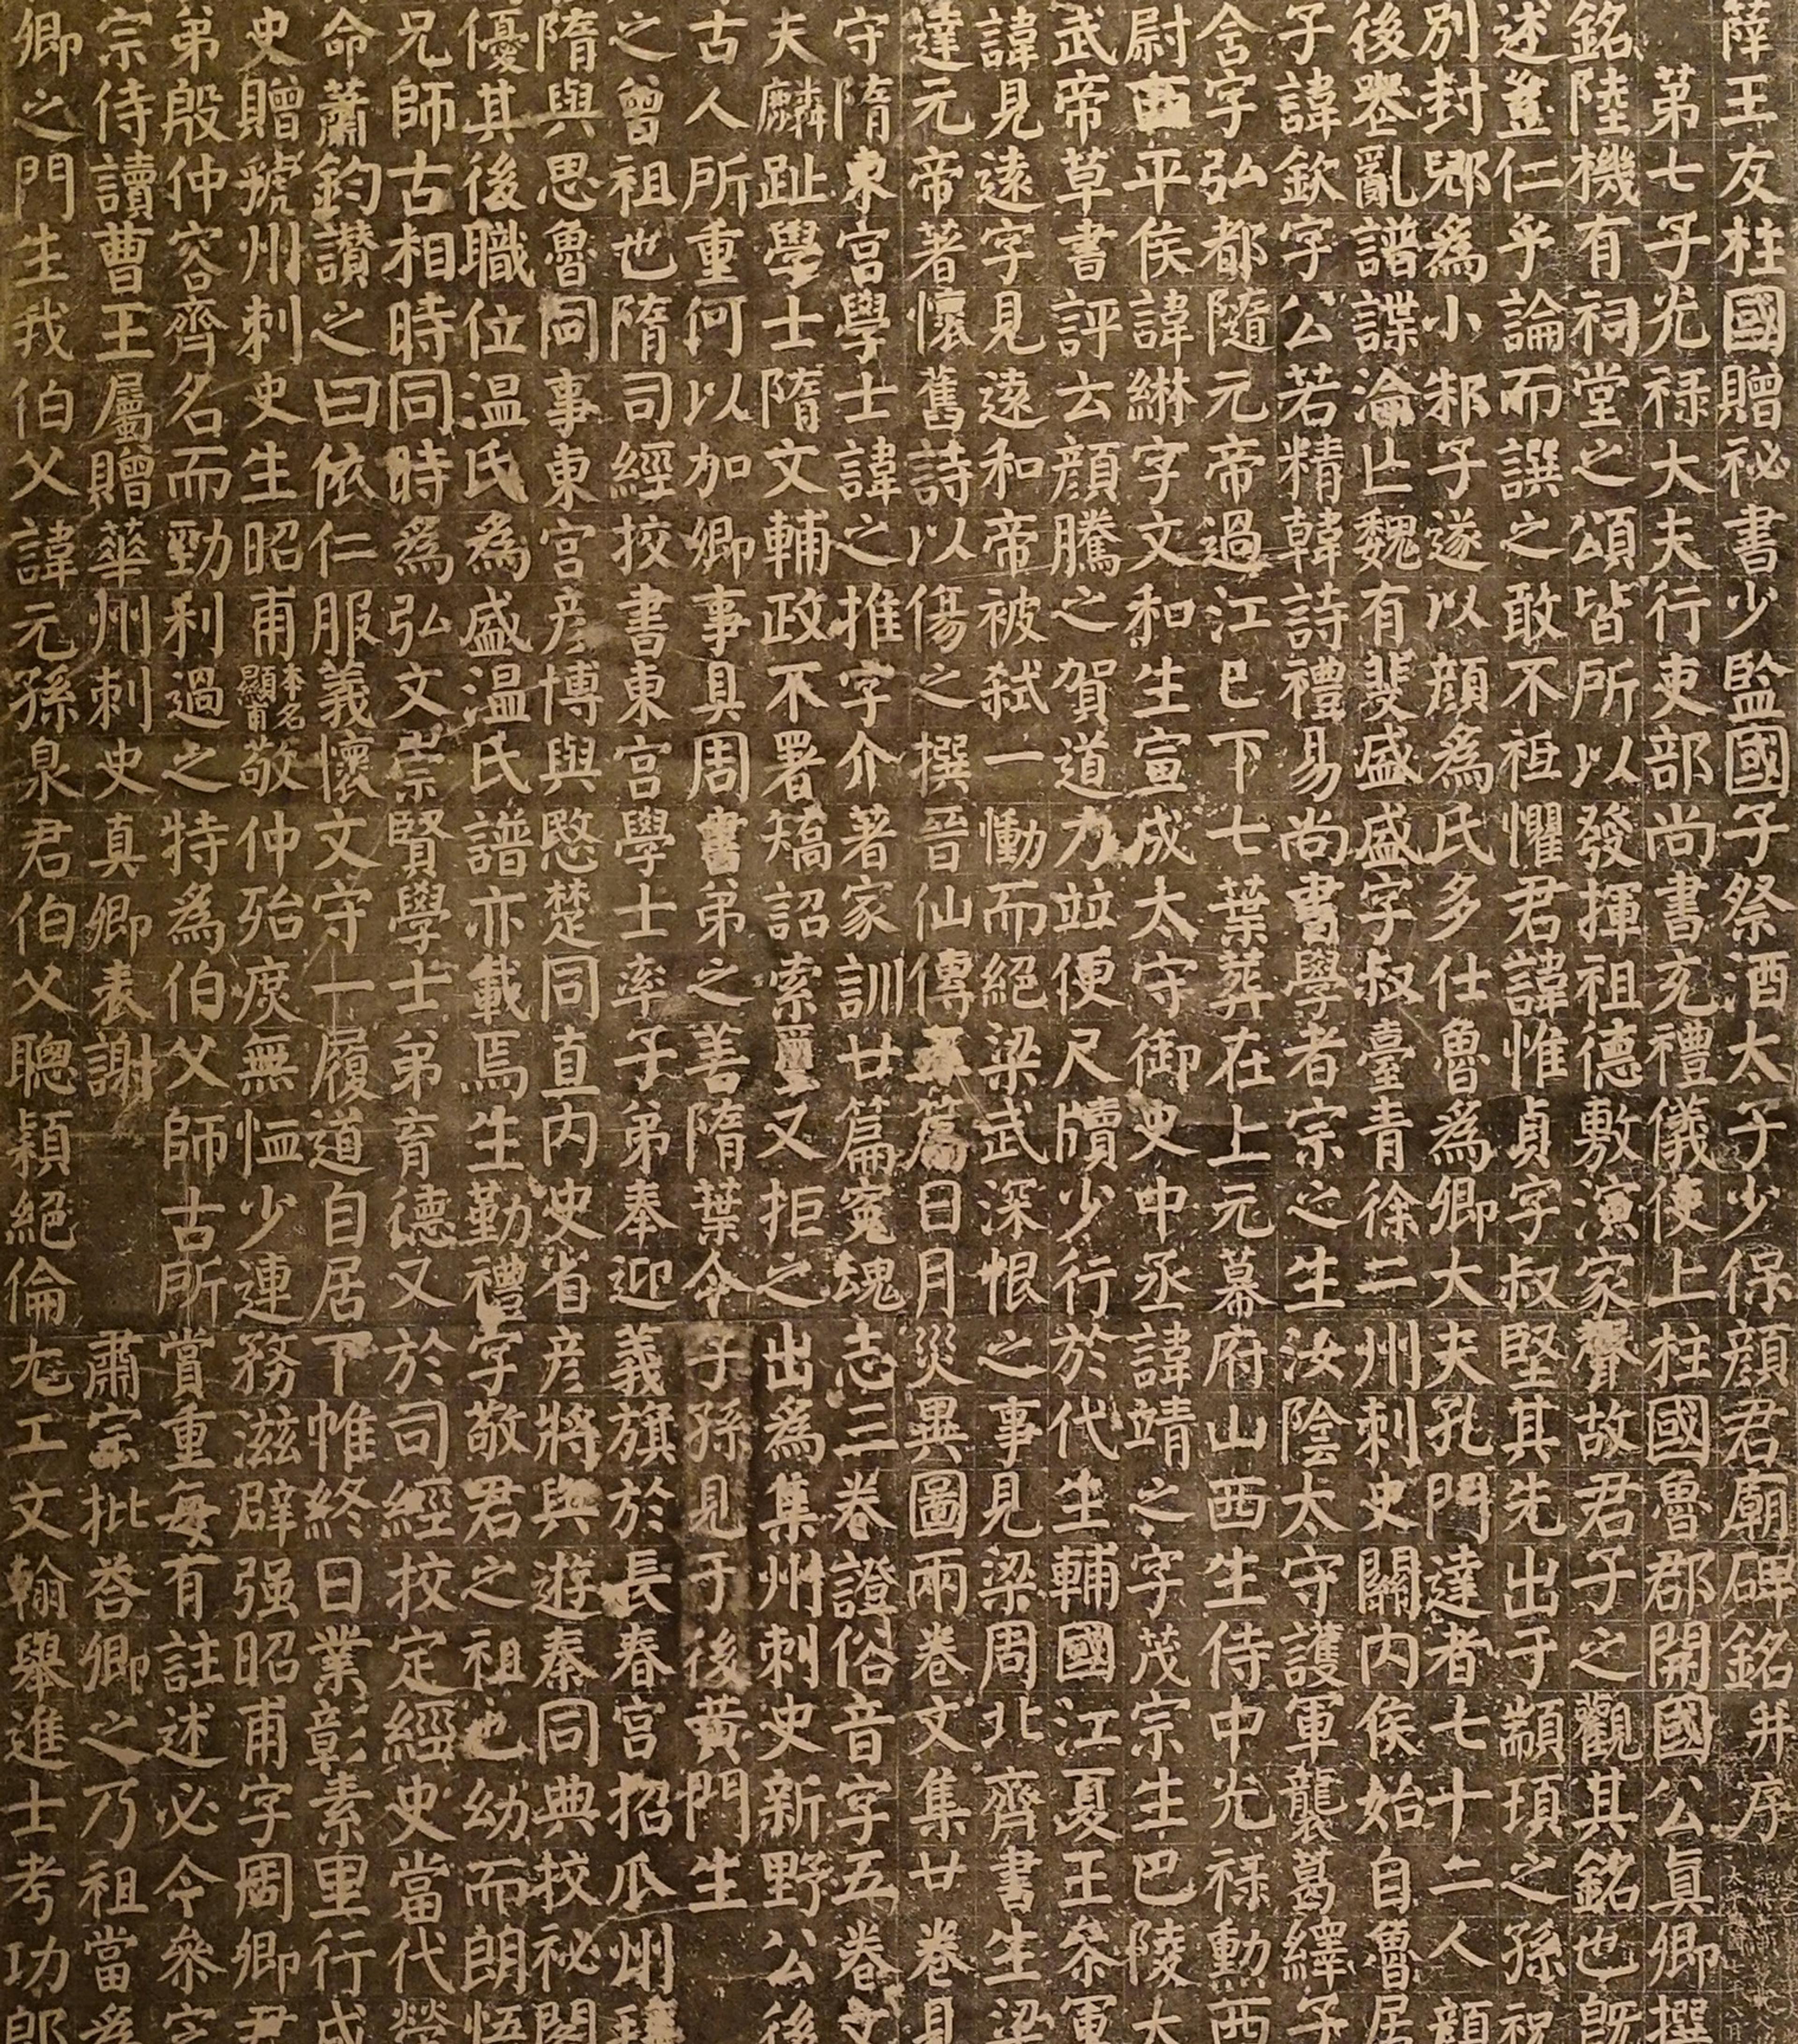 薛王友柱國贈祕書少監國子祭酒太子少保顏君廟碑銘并序
第七子光祿大夫行吏部尚書充禮儀使上柱國魯郡開國公真卿撰
銘陸機有祠堂之頌皆所以發揮祖德敷演家聲故君子之觀其銘也既
述豈仁乎論而譔之敢不祗懼君諱惟貞字叔堅其先出于顓頊之孫祝
別封郳為小邾子遂以顏為氏多仕魯為卿大夫孔門達者七十二人顏
後喪亂譜諜淪亡魏有斐盛盛字叔臺青徐二州刺史關內侯始自魯居
子諱欽字公若精韓詩禮易尚書學者宗之生汝陰太守護軍襲葛繹子
含字弘都隨元帝過江已下七葉葬在上元幕府山西生侍中光祿勳西
尉西平侯諱綝字文和生宣成太守御史中丞諱靖之字茂宗生巴陵太
武帝草書評云顏騰之賀道力並便尺牘少行於代生輔國江夏王參軍
諱見遠字見遠和帝被弒一慟而絕梁武深恨之事見梁周北齊書生梁
達元帝著懷舊詩以傷之撰晉仙傳五篇日月災異圖兩卷文集廿卷見
守隋東宮學士諱之推字介著家訓廿篇冤魂志三卷證俗音字五卷文
夫麟趾學士隋文輔政不署矯詔索璽又拒之出為集州刺史新野公後
古人所重何以加卿事具周書弟之善隋葉令子孫見于後黃門生
之曾祖也隋司經挍書東宮學士率子弟奉迎義旗於長春宮招瓜州
隋與思魯同事東宮彥博與愍楚同直內史省彥將與遊秦同典挍祕閣
優其後職位溫氏為盛溫氏譜亦載焉生勤禮字敬君之祖也幼而朗悟
兄師古相時同時為弘文崇賢學士弟育德又於司經挍定經史當代榮
命蕭鈞讚之曰依仁服義懷文守一履道自居下帷終日業彰素里行成
史贈虢州刺史生昭甫本名顯甫敬仲殆庶無恤少連務滋辟强昭甫字周卿君
弟殷仲容齊名而勁利過之特為伯父師古所賞重每有註述必令參定
宗侍讀曹王屬贈華州刺史真卿表謝 肅宗批荅卿之乃祖當為
卿之門生我伯父諱元孫泉君伯父聰穎絕倫尤工文翰舉進士考功郎